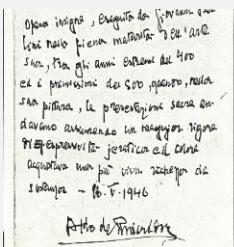 Opera insigne, eseguita da Giovanni
lini nella piena maturità dell'arte
sua, tra gli anni estremi del 400
ed i primissimi del 500, quando, nella
sua pittura, le presentazioni sacre an-
davano assumendo un maggior rigore
di espressività jeratica ed il colore
acquistava una più viva
- 16.V.1946